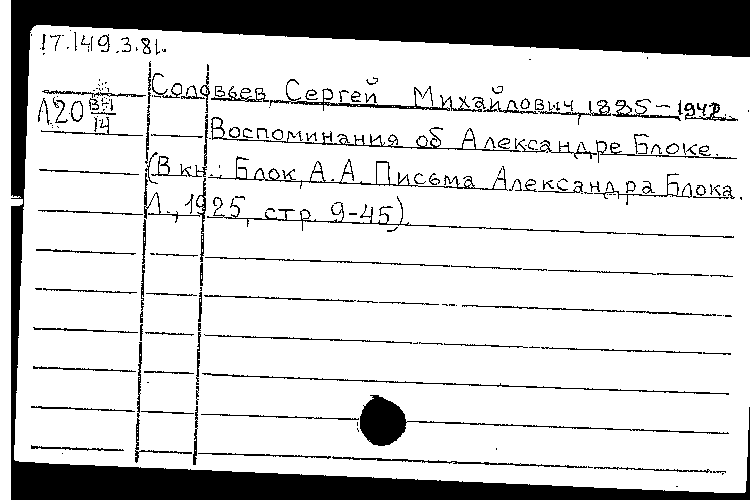 17.149.3.81.
Соловьев, Сергей Михайлович, 1885-1942.
Л20 ВН
14
Воспоминания об Александре Блоке.
(В кн.: Блок, А.А. Письма Александра Блока.
Л., 1925, стр. 9-45).